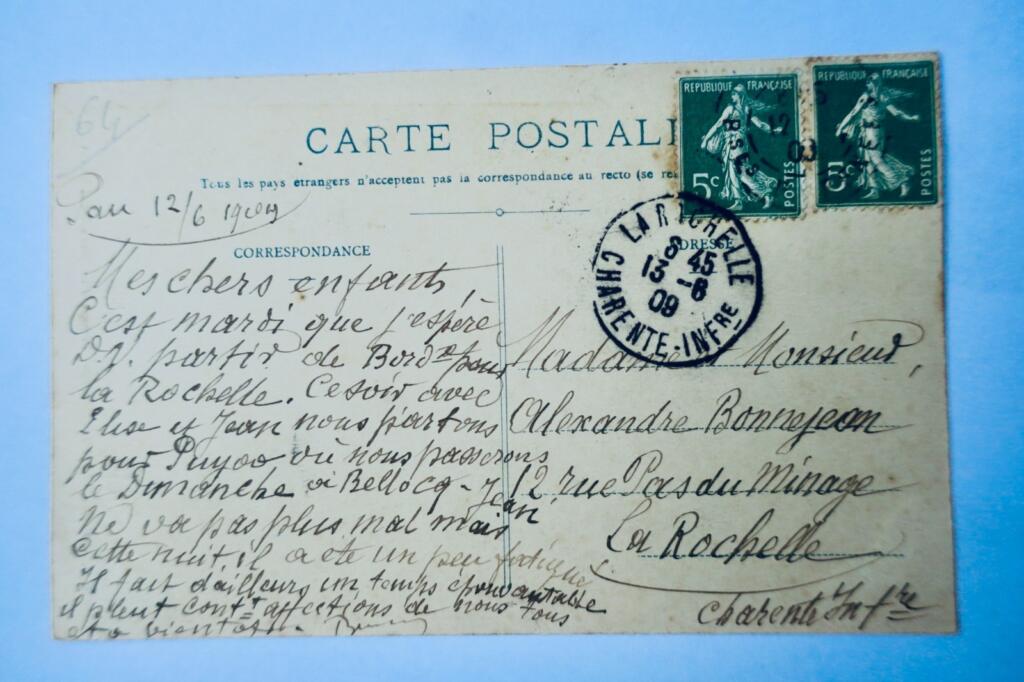 64
CARTE POSTAL
Tous les pays étrangers n'acceptent pas la correspondance au recto (se re
REPUBLIQUE FRANÇAISE
5c
POSTES
REPUBLIQUE FRANÇAISE
5
POSTES
LA ROCHELLE
8 45
13 -6
09
CHARENTE-INFRE
Pau 12/6 1909
CORRESPONDANCE
ADRESSE
Mes chers enfants,
C'est mardi que j'espère
D.V. partir de Bordx pour
la Rochelle. Ce soir avec
Elise et Jean nous partons
pour Puyoo où nous passerons
le Dimanche à Bellocq - Jean
ne va pas plus mal mais
cette nuit il a été un peu fatigué
Il fait d'ailleurs un temps épouvantable
il pleut contt affections de nous tous
et à bientôt.
Madame Monsieur,
Alexandre Bonnejean
12 rue Pas du Minage
La Rochelle
Charente Infre